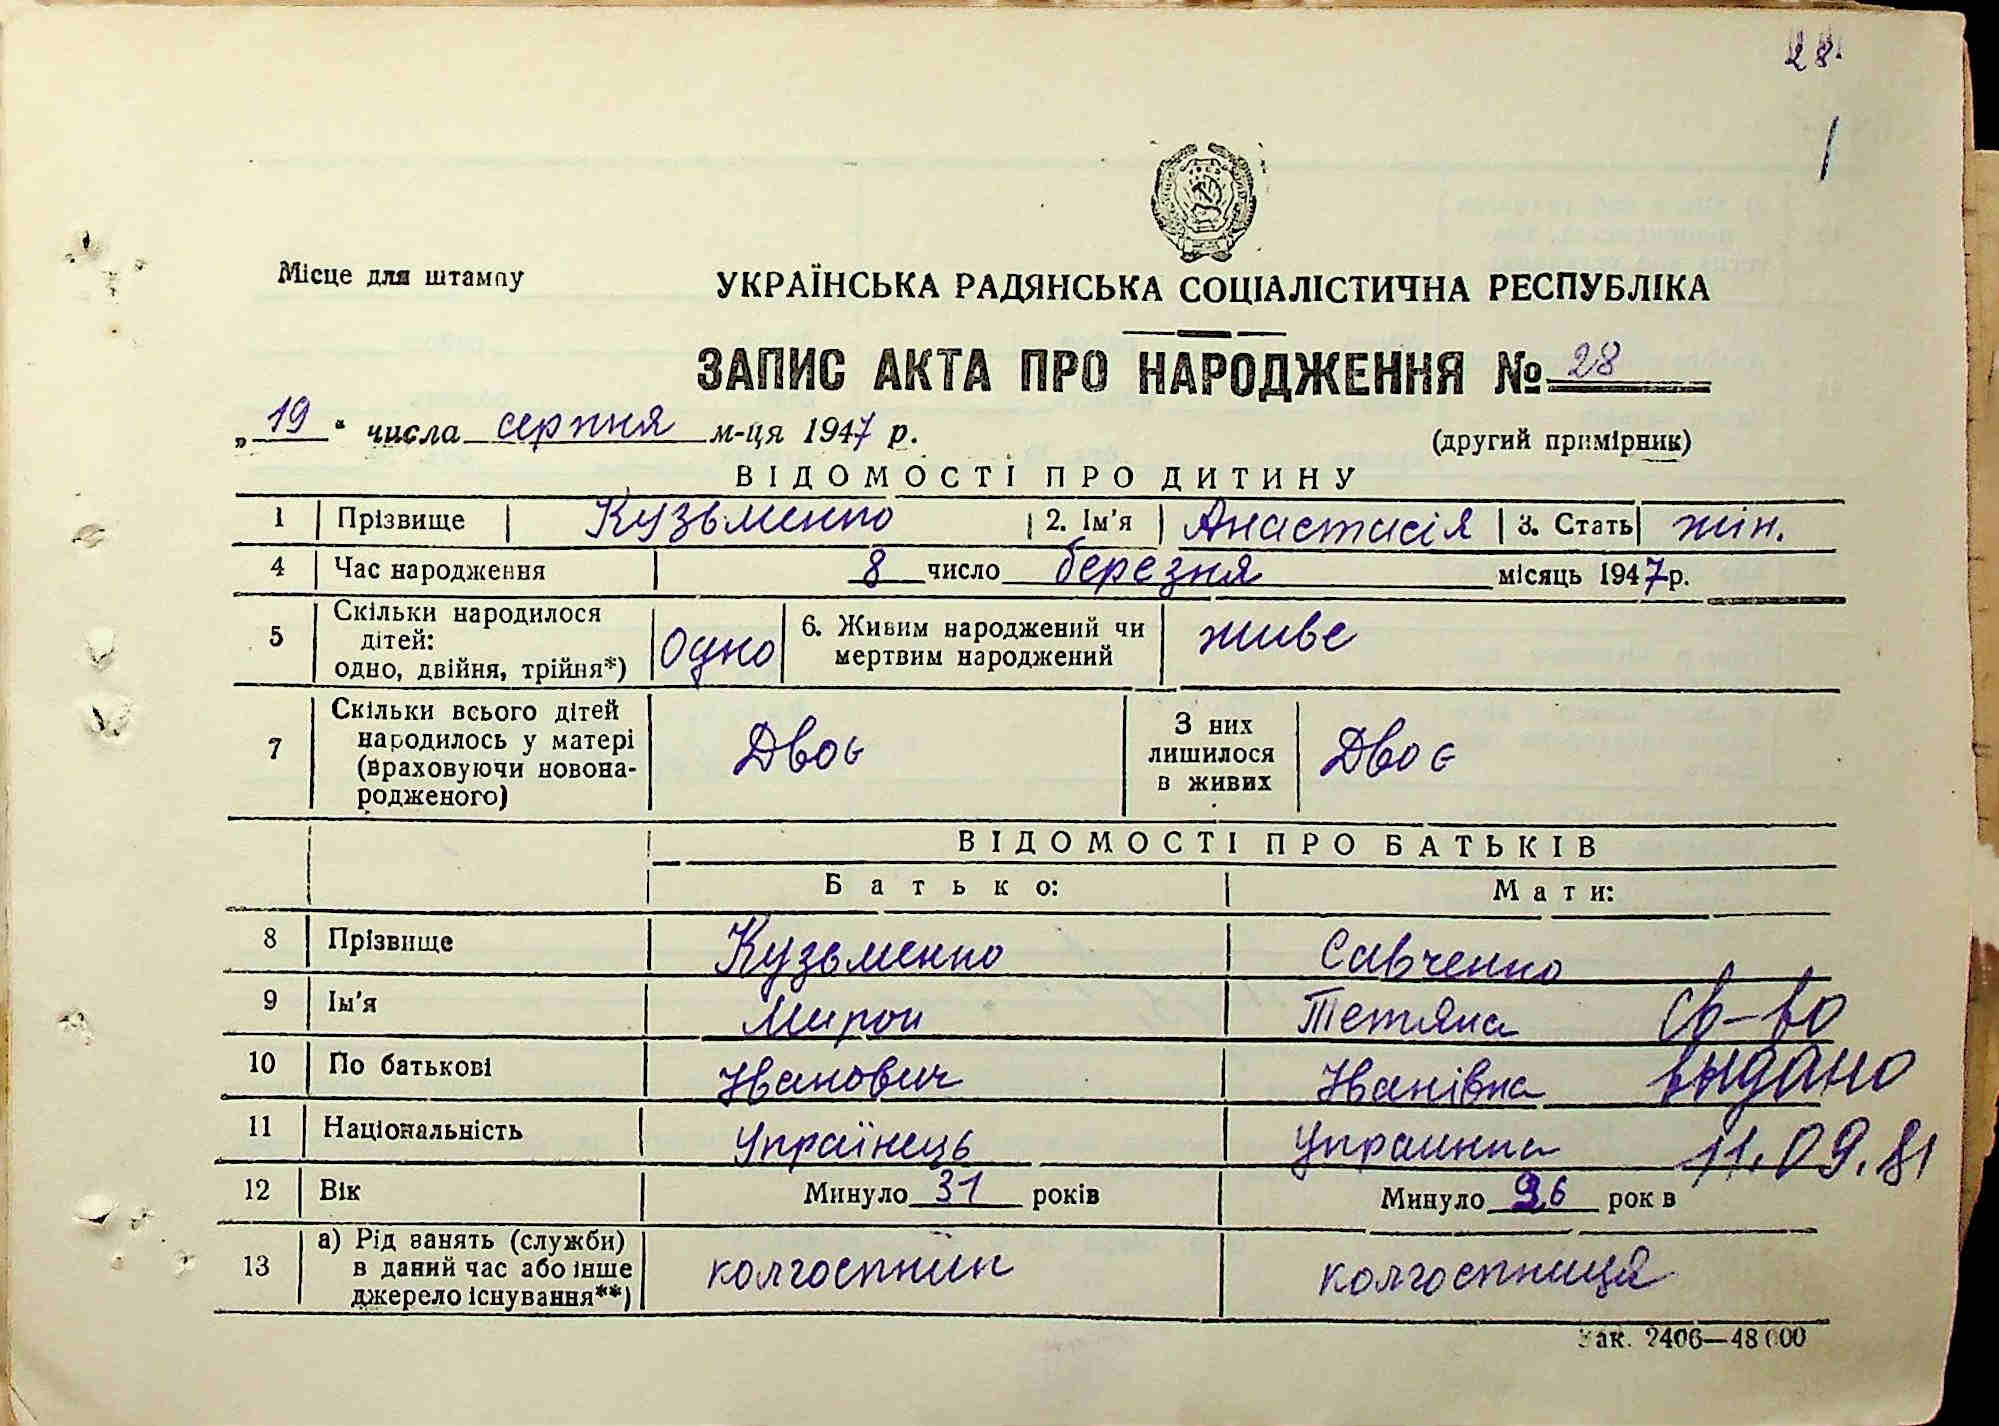 28.
1
Місце для штампу
УКРАЇНСЬКА РАДЯНСЬКА СОЦІАЛІСТИЧНА РЕСПУБЛІКА
ЗАПИС АКТА ПРО НАРОДЖЕННЯ № 28
„19“ числа серпня м-ця 1947 р.
(другий примірник)
ВІДОМОСТІ ПРО ДИТИНУ
1 Прізвище Кузьменко 2. Ім'я Анастасія 3. Стать жін.
4 Час народження 8 число березня місяць 1947 р.
5 Скільки народилося дітей: одно, двійня, трійня*) Одно 6. Живим народжений чи мертвим народжений живе
7 Скільки всього дітей народилось у матері (враховуючи новонародженого) Двоє З них лишилося в живих Двоє
ВІДОМОСТІ ПРО БАТЬКІВ
Батько: Мати:
8 Прізвище Кузьменко Савченко
9 Ім'я Мирон Тетяна Св-во
10 По батькові Іванович Іванівна выдано
11 Національність Українець Украинка 11.09.81
12 Вік Минуло 31 років Минуло 26 рок в
13 а) Рід занять (служби) в даний час або інше джерело існування**) колгоспник колгоспниця
Зак. 2406—48000